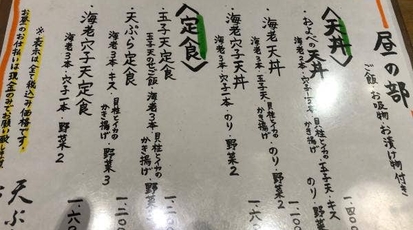 昼の部
ご飯・お吸物・お漬け物付き
〈天丼〉
・およべの天丼
海老3本・穴子一本・貝柱とイカの
かき揚げ・玉子天・キス
のり 野菜2
1.400
・海老天丼
海老3本・玉子天・貝柱とイカの
かき揚げ
のり 野菜2
・海老穴子天丼
海老3本・穴子一本 のり・野菜2
1.6
〈定食〉
・玉子天定食
玉子天のせご飯・海老3本・貝柱とイカの
かき揚げ・野菜
1.20
・天ぷら定食
海老3本・キス・貝柱とイカの
かき揚げ・野菜3
1.20
・海老穴子天定食
海老3本・穴子一本・野菜2
1.60
※表示は全て税込み価格です。
お昼のお仕払いは現金のみでお願い致し
天ぷ